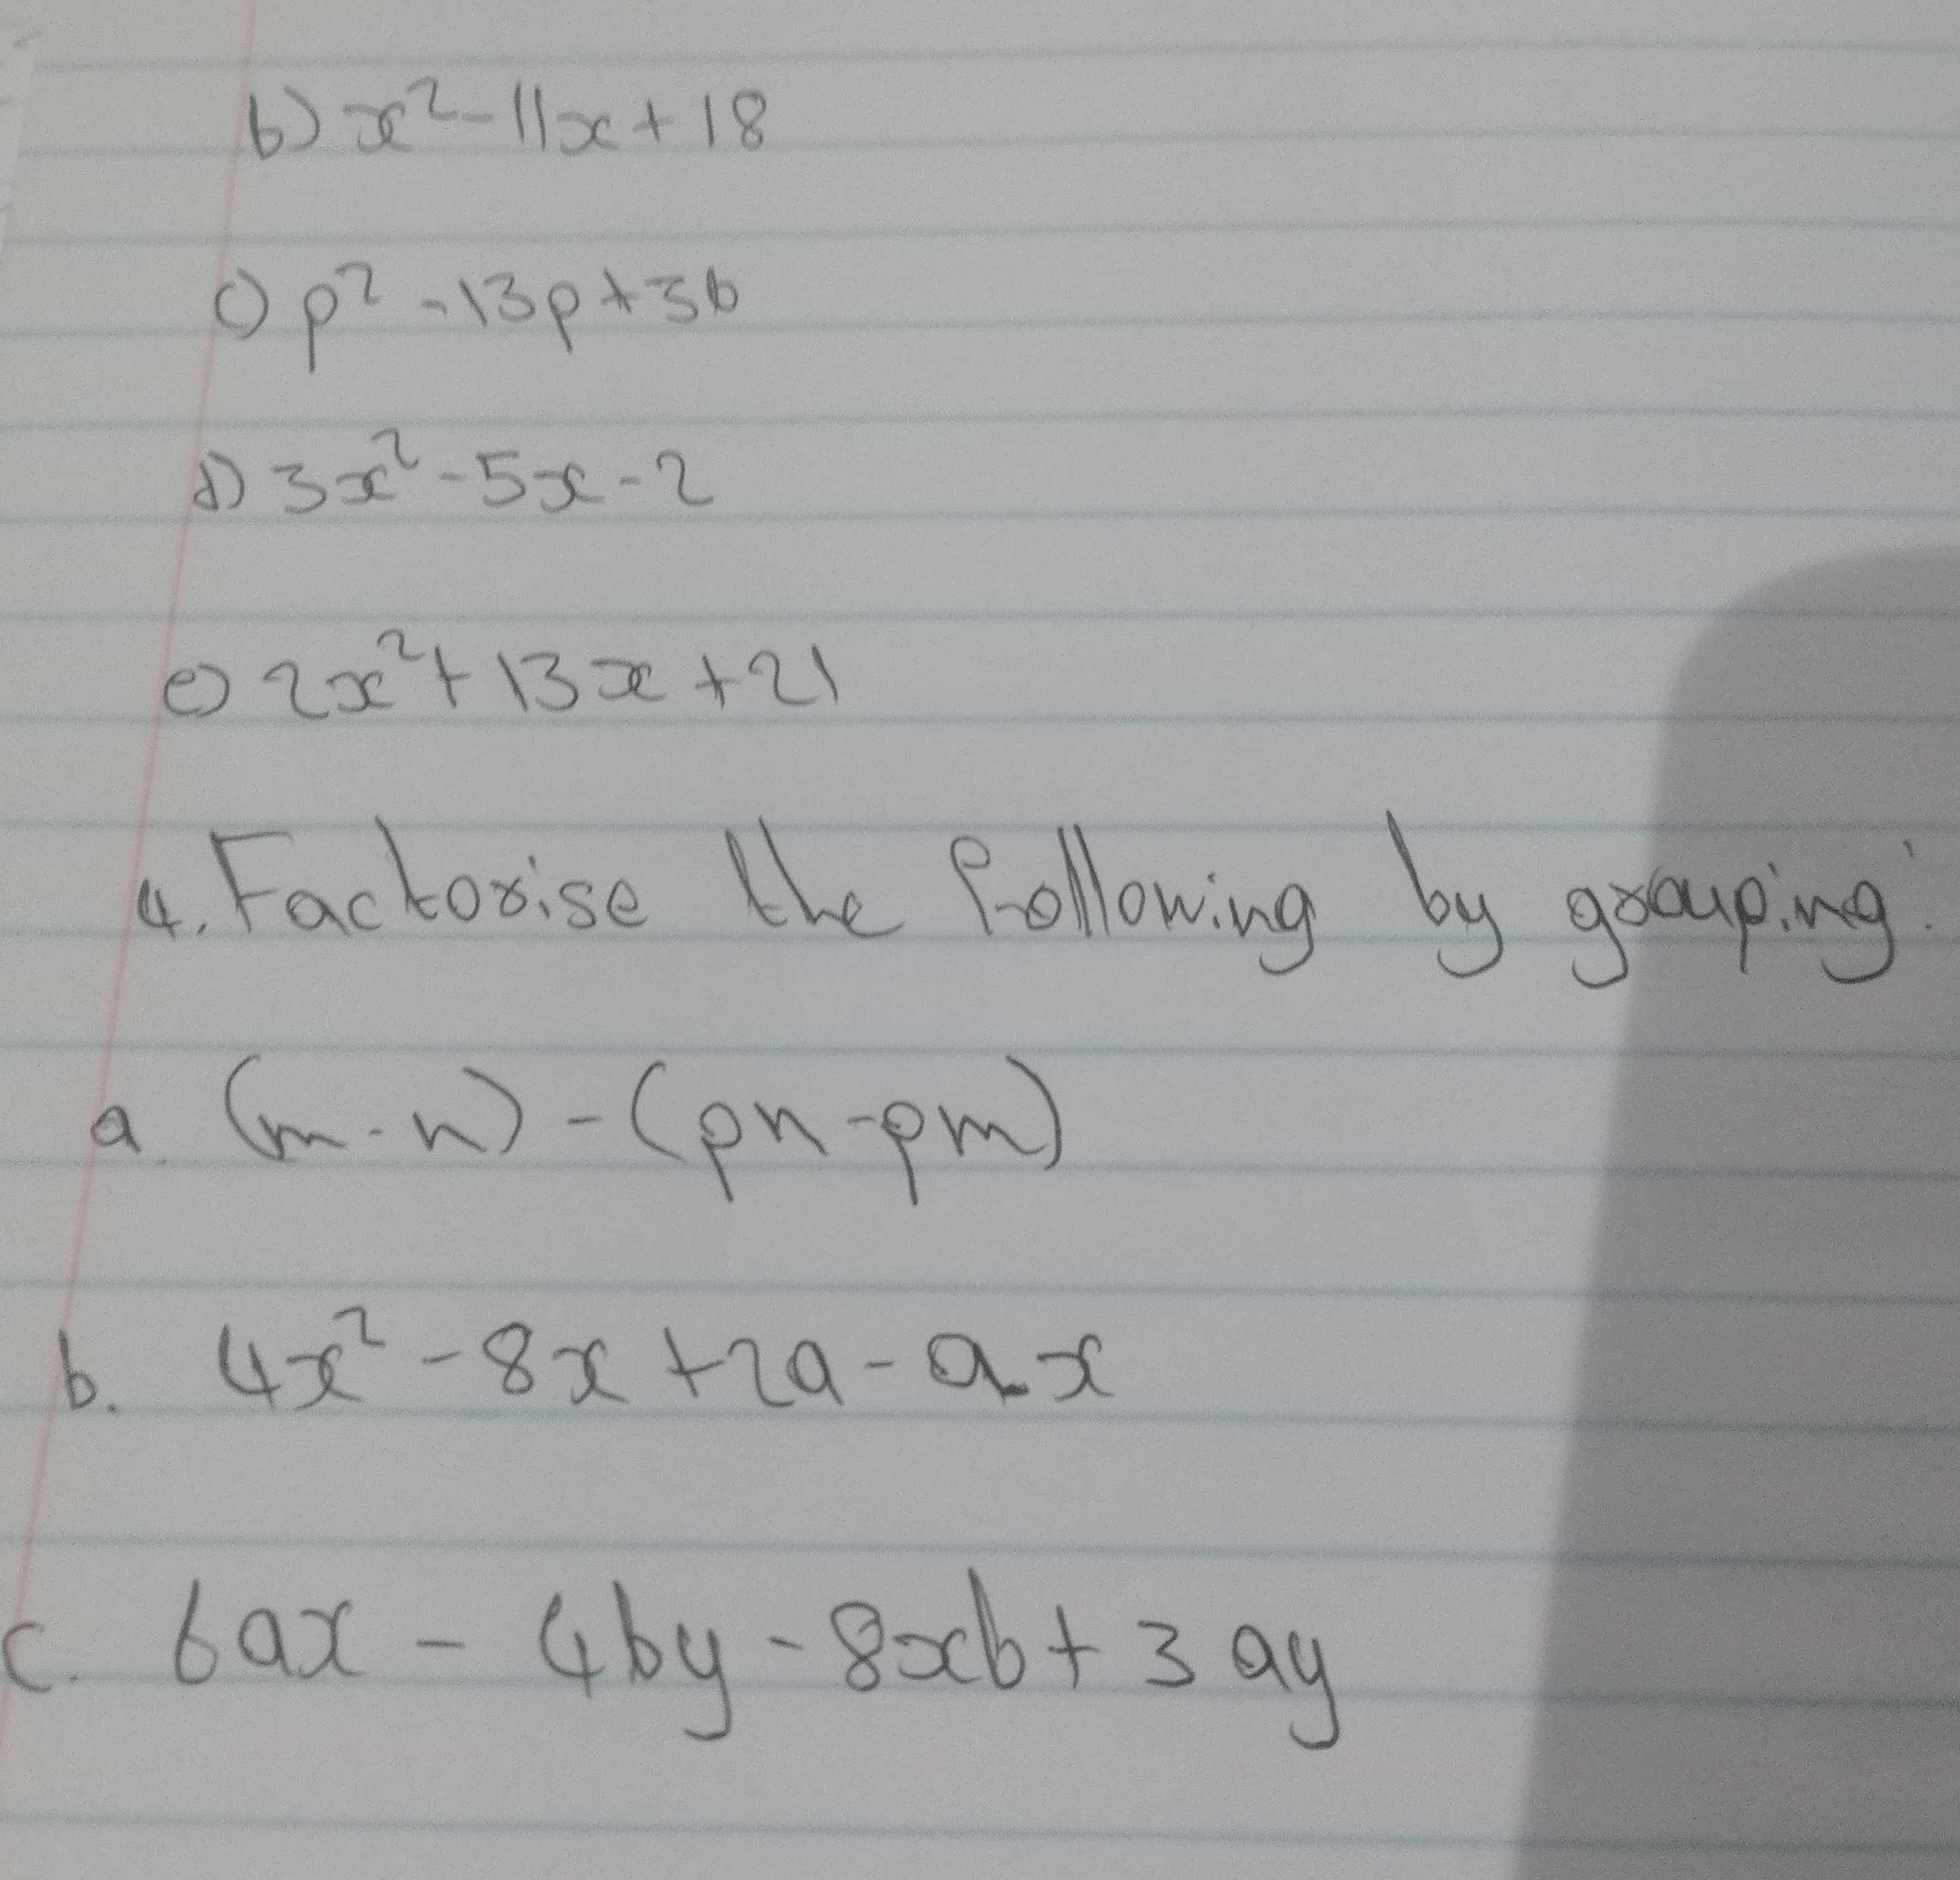 b) x² - 11x + 18
c) p² - 13p + 36
d) 3x² - 5x - 2
e) 2x² + 13x + 21
4. Factorise the following by grouping:
a. (m - n) - (pn - pm)
b. 4x² - 8x + 2a - ax
c. 6ax - 4by - 8xb + 3ay